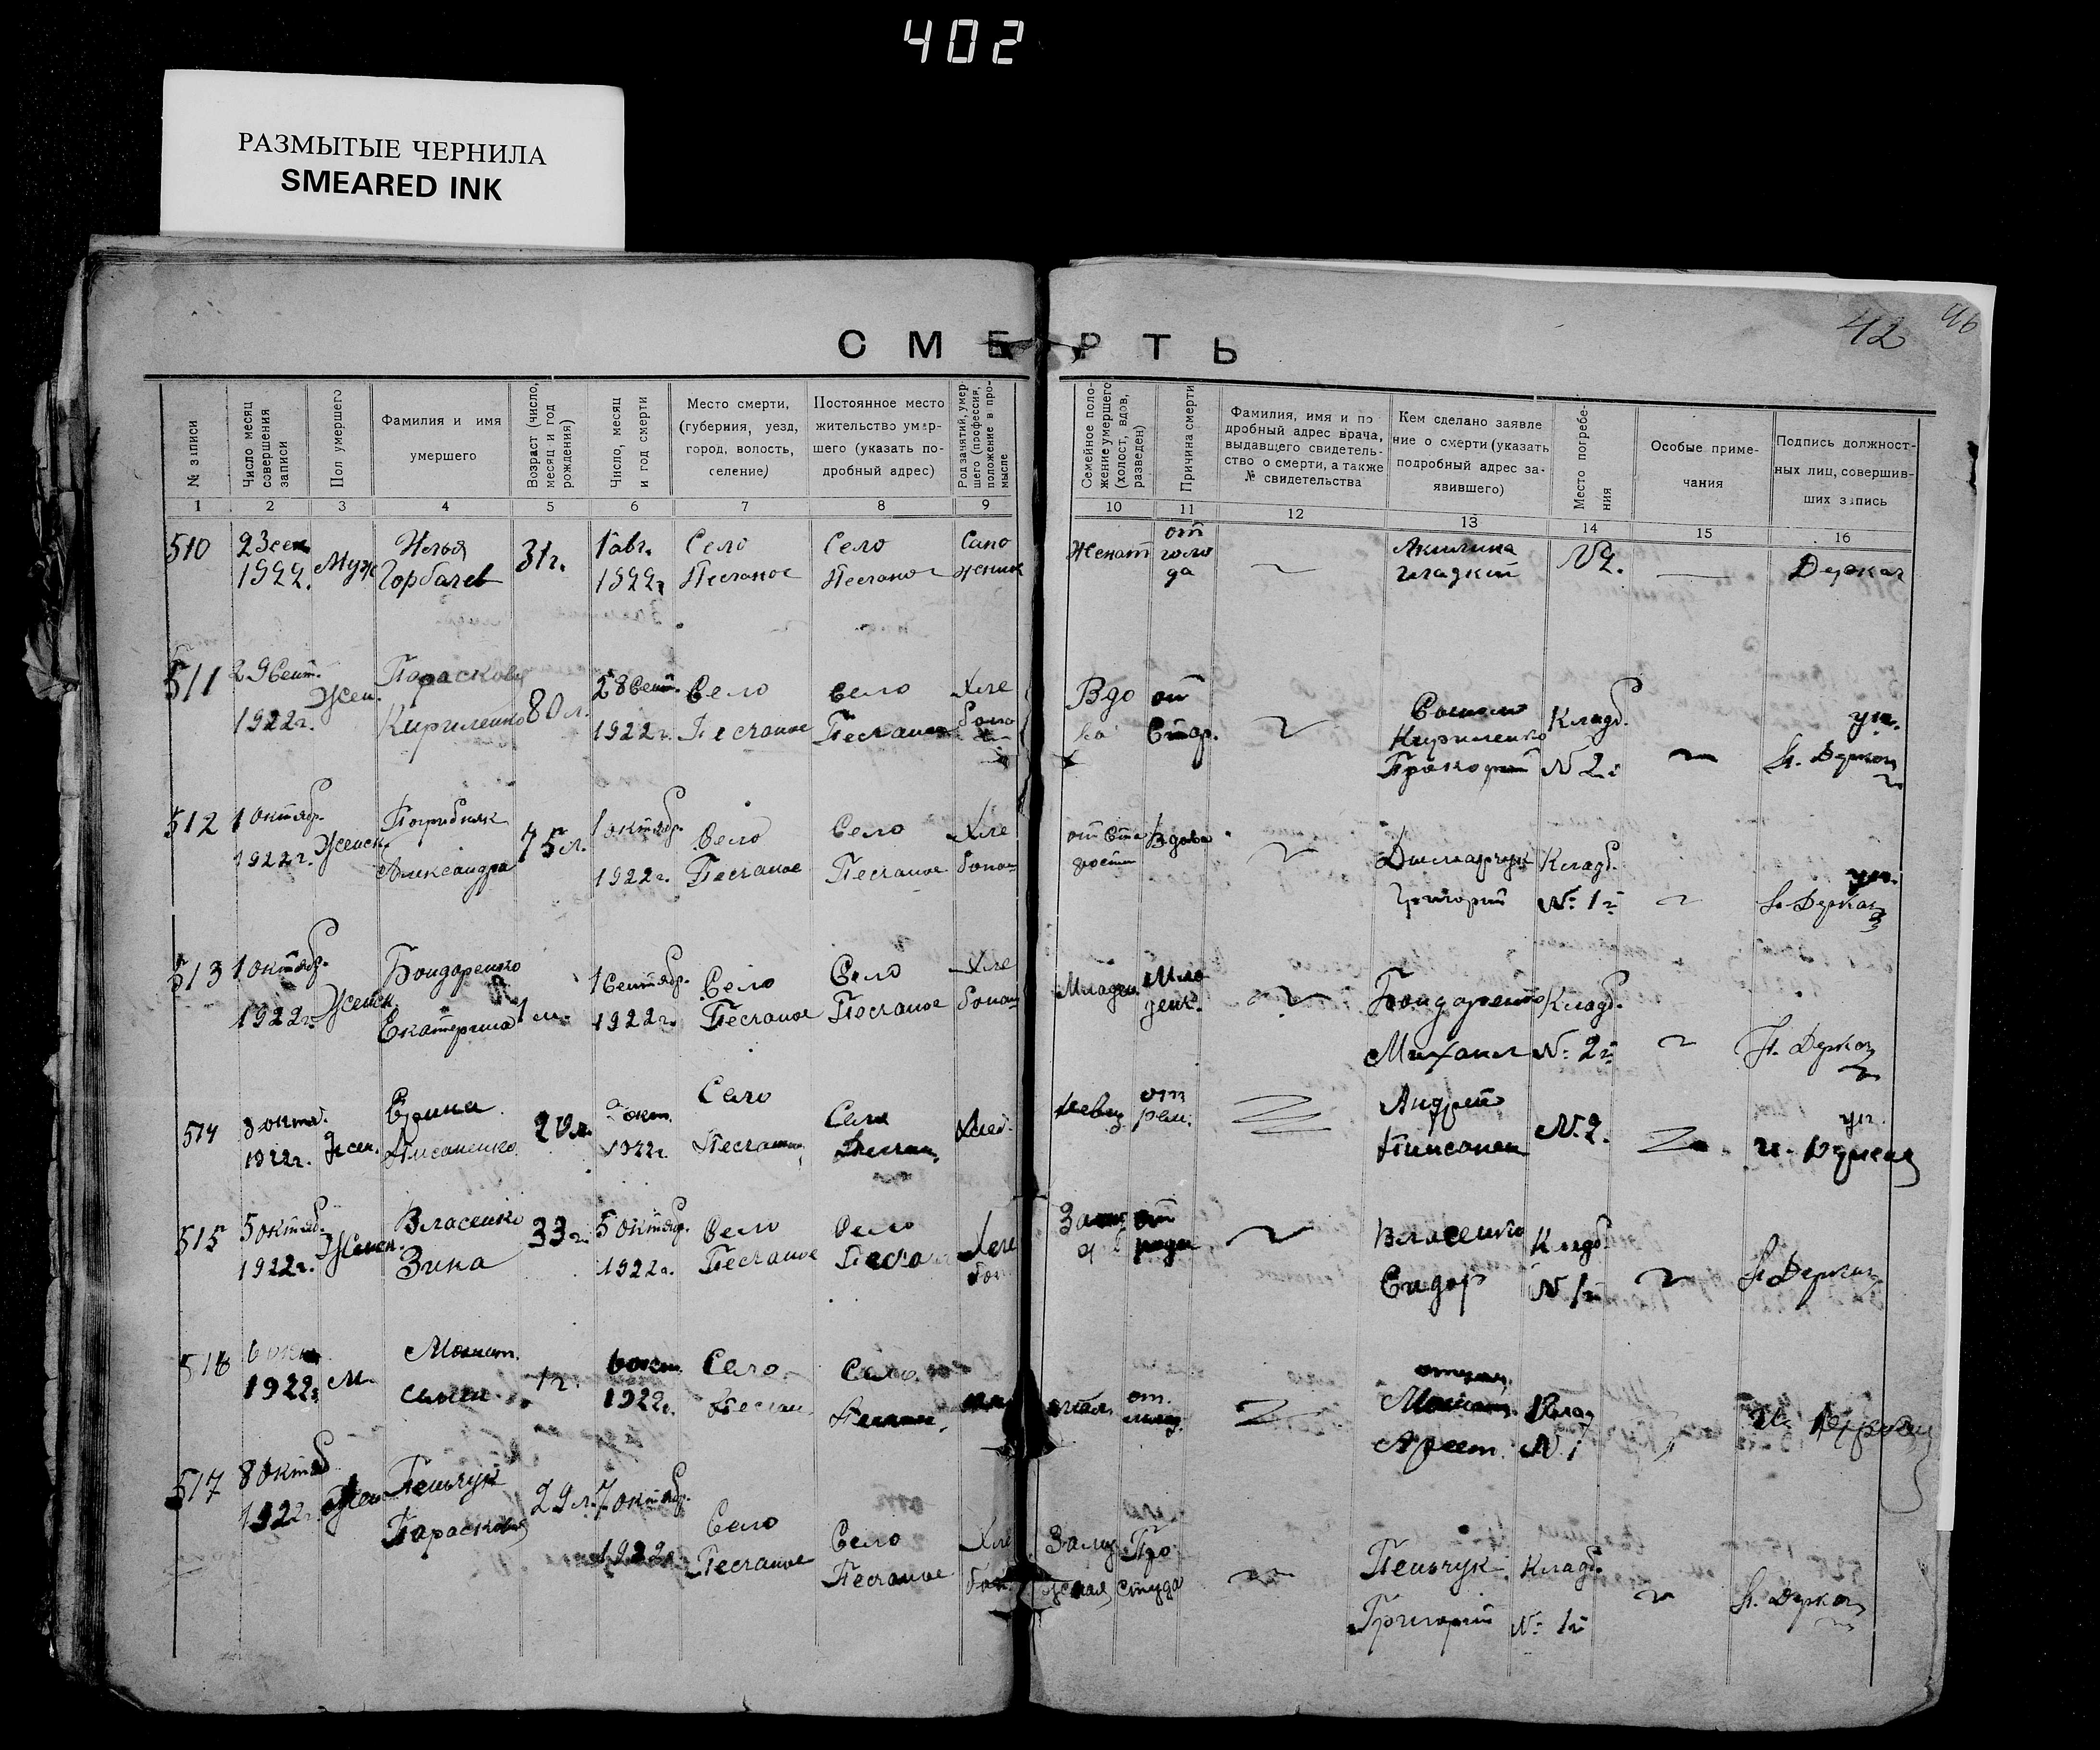 402
РАЗМЫТЫЕ ЧЕРНИЛА
SMEARED INK
42
96
СМЕРТЬ
№ записи
Число месяц совершения записи
Пол умершего
Фамилия и имя умершего
Возраст (число, месяц и год рождения)
Число, месяц и год смерти
Место смерти, (губерния, уезд, город, волость, селение)
Постоянное место жительство умершего (указать подробный адрес)
Род занятий, умершего (профессия, положение в промысле
Семейное положение умершего (холост, вдов, разведен)
Причина смерти
Фамилия, имя и подробный адрес врача, выдавщего свидетельство о смерти, а также № свидетельства
Кем сделано заявление о смерти (указать подробный адрес заявившего)
Место погребения
Особые примечания
Подпись должностных лиц, совершивших запись
1 2 3 4 5 6 7 8 9 10 11 12 13 14 15 16
510 23 сен. 1922. Муж Илья Горбачев 31г. 1 авг. 1922г. Село Песчаное Село Песчаное Сапожник Женат от голода Акилина Гладкий №2. Деркач
511 29 Сент. 1922г. Жен. Параскова Кириленко 80 л. 28 Сент. 1922г. Село Песчаное Село Песчаное Хле Вдова от Стар. Кириленко Прокофий Кладб. N 2й уп. Деркач
512 1 октябр. 1922г. Женск. Погрибняк Александра 75 л. 1 октябр. 1922г. Село Песчаное Село Песчаное Хлебопаш от Старости Вдова Григорий Кладб. № 1й уп. Деркач
513 1 октябр. 1922г. Женск. Бондаренко Екатерина 1 м. 1 Сентябр. 1922г. Село Песчаное Село Песчаное Хлебопаш Младен. Младенч. Бондаренко Михаил Кладб. № 2й Деркач
514 3 окт. 1922г. Жен. Ерина Писаненко 20 л. окт. 1922г. Село Песчаное Село Песчан. Хлеб. от Андрей Писанен N.2. уп. Деркач
515 5 октяб. 1922г. Женск. Власенко Зина 33 г. 5 октябр. 1922г. Село Песчаное Село Песча Хлебоп от роди Власенко Сидор Кладб. N 1й Деркач
516 6 окт 1922г М. 1 г. 6 окт. 1922г. Село Песчан. Село Песчан. от Клад N 1 Деркач
517 8 Октяб 1922г. Жен Пенчук Параскова 29 л. 7 октябр. 1922г. Село Песчаное Село Песчаное Хлебоп Замужняя Простуда Пенчук Григорий Кладб. № 1й Деркач